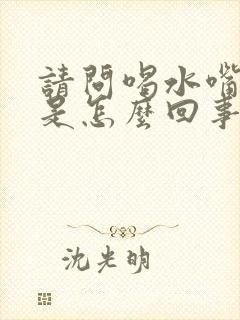 請問喝水嘴
是怎麼回事
沈光明